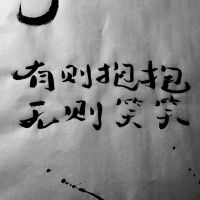 有则抱抱
无则笑笑